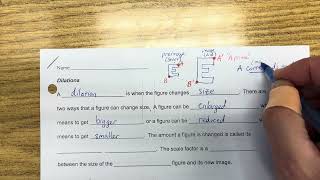 preimage image
A A' "A prime"
Name
B B' A corre
Dilations
A dilation is when the figure changes size. There are
two ways that a figure can change size. A figure can be enlarged which
means to get bigger or a figure can be reduced which
means to get smaller. The amount a figure is changed is called its
. The scale factor is a
between the size of the figure and its new image.